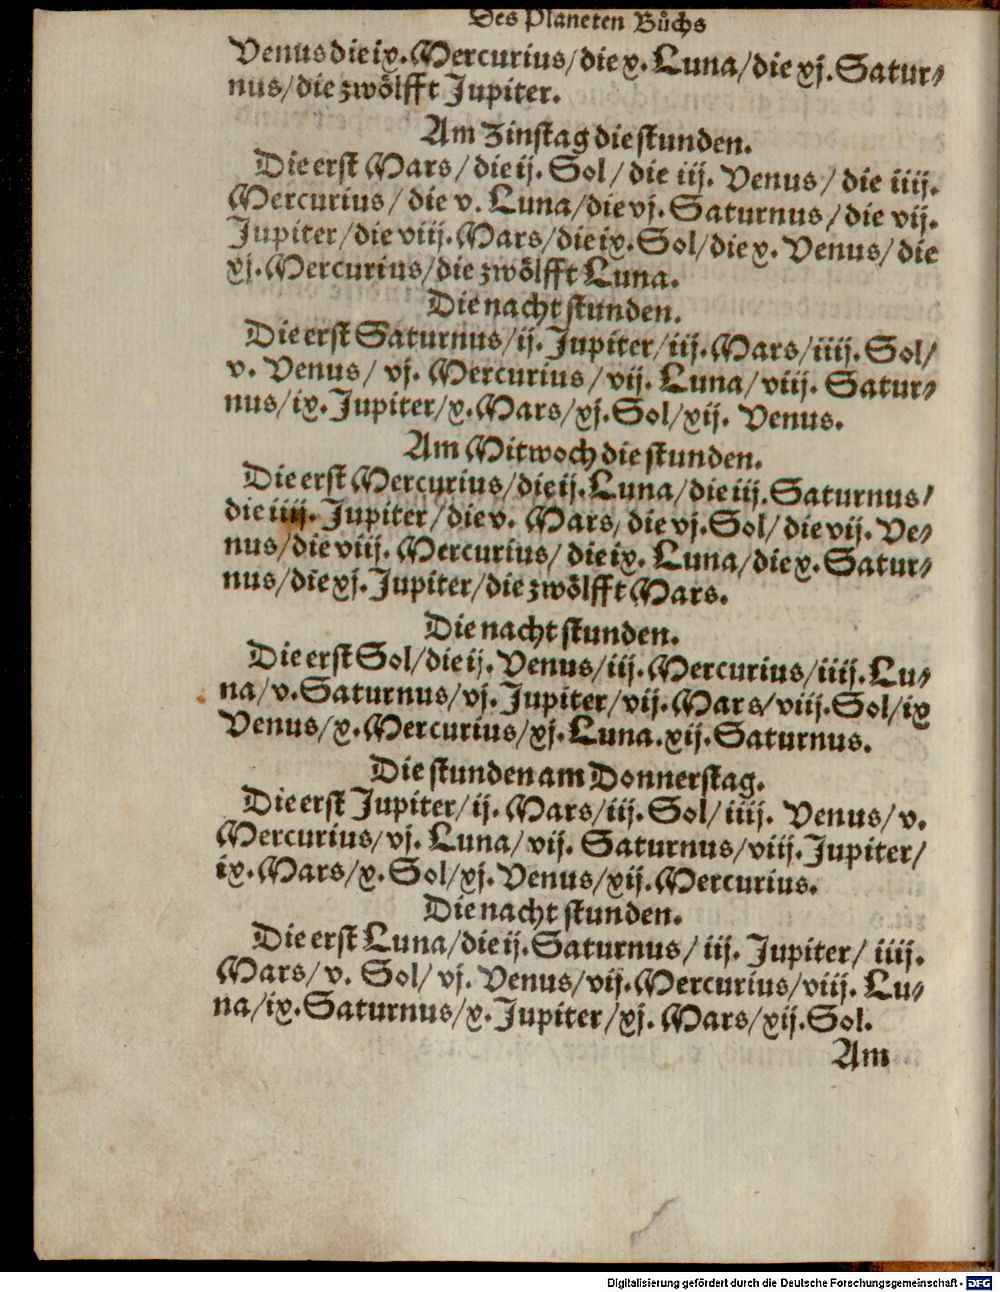 Des Planeten Bůchs
Venus die ix. Mercurius/die x. Luna/die xj. Satur⸗
nus/die zwoͤlfft Jupiter.
Am Zinstag die stunden.
Die erst Mars/ die ij. Sol/ die iij. Venus/ die iiij.
Mercurius/ die v. Luna/die vj. Saturnus/die vij.
Jupiter/die viij. Mars/die ix. Sol/die x. Venus/die
xj. Mercurius/die zwoͤlfft Luna.
Die nacht stunden.
Die erst Saturnus/ij. Jupiter/iij. Mars/iiij. Sol/
v. Venus/ vj. Mercurius/vij. Luna/viij. Satur⸗
nus/ix. Jupiter/x. Mars/xj. Sol/xij. Venus.
Am Mitwoch die stunden.
Die erst Mercurius/die ij. Luna/die iij. Saturnus/
die iiij. Jupiter/die v. Mars/die vj. Sol/die vij. Ve⸗
nus/die viij. Mercurius/ die ix. Luna/die x. Satur⸗
nus/die xj. Jupiter/die zwoͤlfft Mars.
Die nacht stunden.
Die erst Sol/die ij. Venus/iij. Mercurius/iiij. Lu⸗
na/v. Saturnus/vj. Jupiter/vij. Mars/viij. Sol/ix
Venus/x. Mercurius/xj. Luna. xij. Saturnus.
Die stunden am Donnerstag.
Die erst Jupiter/ij. Mars/iij. Sol/iiij. Venus/v.
Mercurius/vj. Luna/vij. Saturnus/viij. Jupiter/
ix. Mars/x. Sol/xj. Venus/xij. Mercurius.
Die nacht stunden.
Die erst Luna/die ij. Saturnus/ iij. Jupiter/ iiij.
Mars/v. Sol/vj. Venus/vij. Mercurius/viij. Lu⸗
na/ix. Saturnus/x. Jupiter/xj. Mars/xij. Sol.
Am
Digitalisierung gefördert durch die Deutsche Forschungsgemeinschaft - DFG